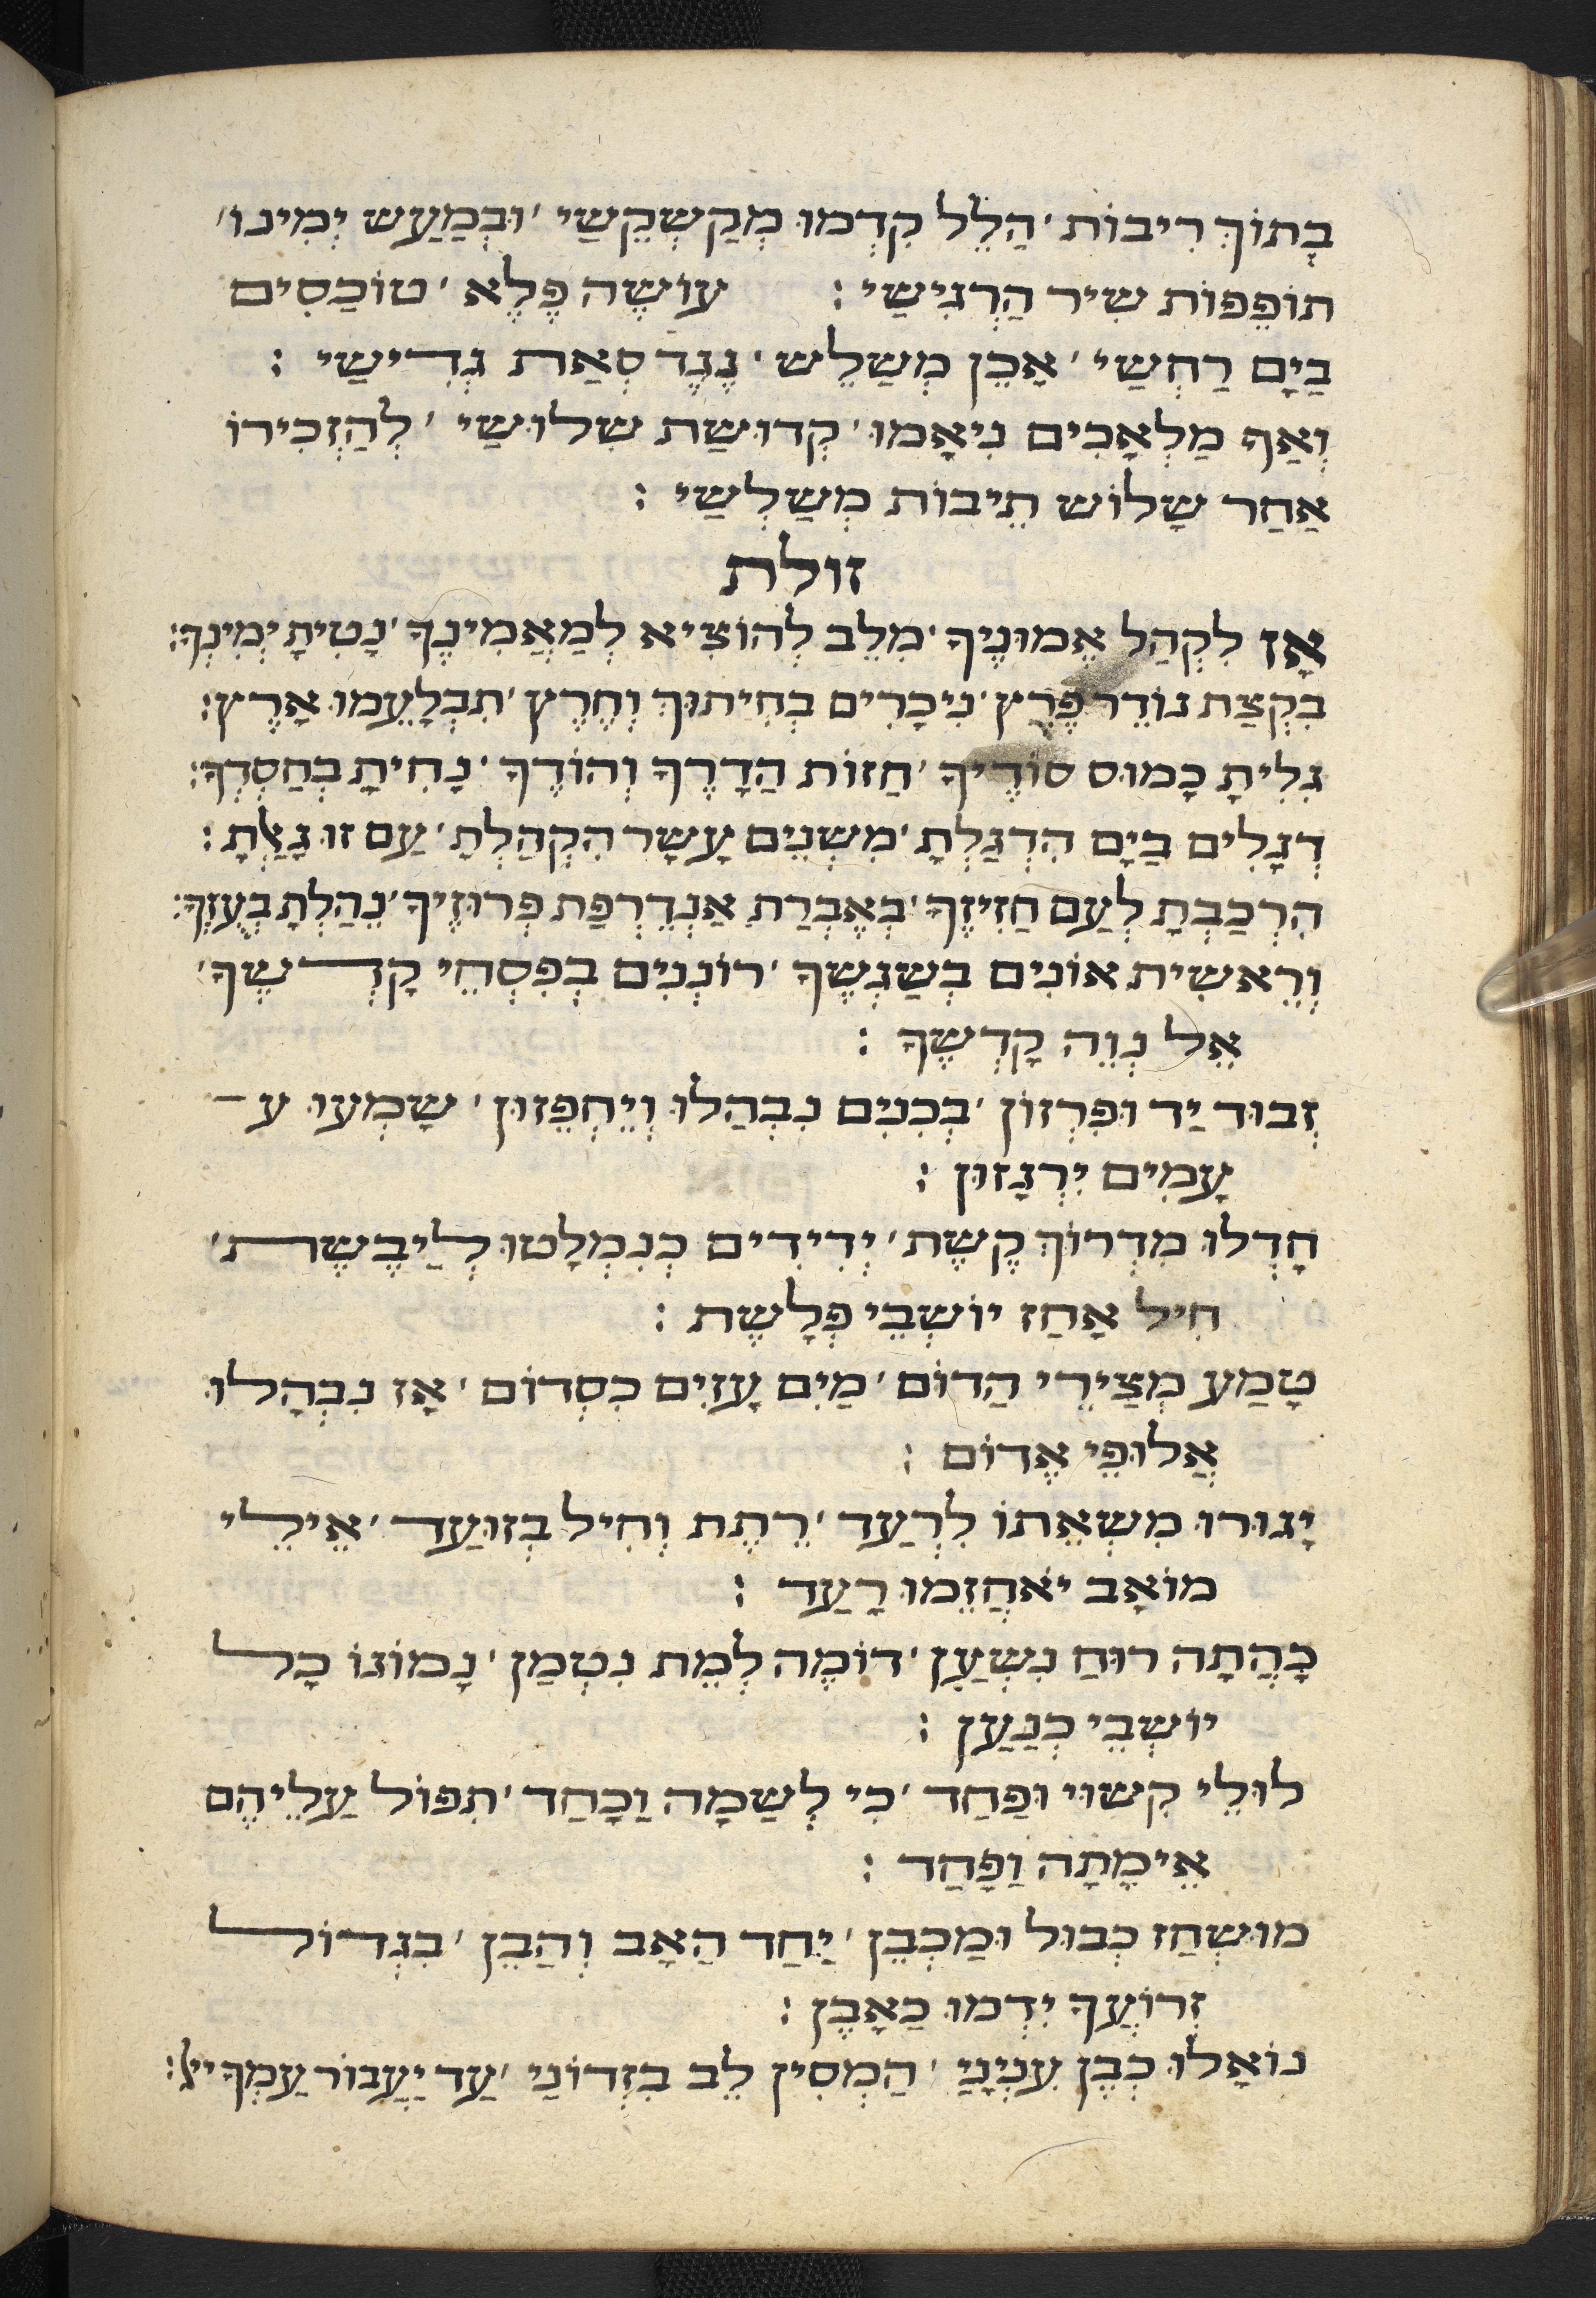 בְתוֹךְ רִיבוֹת׳ הַלֵל קִדְמוּ מְקַשְקֵשַי ׳ וּבְמַעַש יְמִינוֹ׳
תוֹפֵפוֹת שִיר הַרְגִישַי : עוֹשֶה פֶלֶא ׳ טוֹכַסִים
בַיָם רַחְשַי ׳ אָכֵן מְשַלֵש ׳ נֶגֶד סְאַת גְדִישַי :
וְאַף מַלְאָכִים נִיאָמוּ ׳ קְדוּשַת שִלוּשַי ׳ לְהַזְכִירוֹ
אַחַר שָלוֹש תֵיבוֹת מְשַלְשַי :
זולת
אָז לִקְהַל אֱמוּנֶיךָ ׳ מִלֵב לְהוֹצִיא לְמַאֲמִינֶךָ ׳ נָטִיתָ יְמִינְךָ:
בִקְצַת גוֹדֵר פֶרֶץ ׳ נִיכָרִים בְחִיתוּךְ וְחֶרֶץ ׳ תִבְלָעֵמוֹ אָרֶץ:
גִלִיתָ כָמוּס סוֹדֶיךָ ׳ חַזוֹת הַדָרֶךָ וְהוֹדֶךָ ׳ נָחִיתָ בְחַסְדְךָ:
דְגָלִים בַיָם הִדְגַלְתָ ׳ מִשְנֵים עָשָר הִקְהַלְתָ ׳ עַם זוּ גָאָלְתָ :
הִרְכַבְתָ לְעַם חַזִיזֶךָ ׳ בְאֶבְרַת אַנְדֵרְפַת פְרוּזֶיךָ ׳ נֵהַלְתָ בְעֻזְךָ:
וְרֵאשִית אוֹנִים בְשַגְשֶךָ ׳ רוֹנְנִים בְפִסְחֵי קָדְשֶךָ ׳
אֶל נְוֵה קָדְשֶךָ :
זְבוּד יַד וּפִרְזוֹן ׳ בְכִנִים נִבְהַלוּ וְיֵחְפֵזוּן ׳ שָמְעוּ ע־
עָמִים יִרְגָזוּן :
חָדְלוּ מִדְרוֹךְ קֶשֶת ׳ יְדִידִים כְנִמְלָטוּ לְיַבֶשֶת ׳
חִיל אָחַז יוֹשְבֵי פְלָשֶת :
טָמַע מְצֵירֵי הַדוֹם ׳ מַיִם עָזִים כִסְדוֹם ׳ אָז נִבְהָלוּ
אֲלוּפֵי אֱדוֹם :
יָגוּרוּ מִשְאֵתוֹ לִרְעַד ׳ רֵתֶת וְחִיל בְזוֹעַד ׳ אֵילֵי
מוֹאָב יֹאחֲזֵמוֹ רָעַד :
כָהֲתָה רוּחַ נִשְעַן ׳ דוֹמֶה לְמֵת נִטְמַן ׳ נָמוֹגוּ כָל
יוֹשְבֵי כְנַעַן :
לוּלֵי קִשוּי וּפַחַד ׳ כִי לְשַמָה וַכָחַד ׳ תִפוֹל עַלֵיהֶם
אֵימָתָה וַפָחַד :
מוּשְחַז כְבוּל וּמַכְבֵן ׳ יַחַד הַאָב וְהַבֵן ׳ בִגְדוֹל
זְרוֹעֲךָ יִדְמוּ כַאָבֶן :
נוֹאָלוּ כְבֶן עִנְיָנַי ׳ הַמְסִין לֵב בִזְדוֹנַי ׳ עַד יַעֲבוֹר עַמְךָ יי׳: